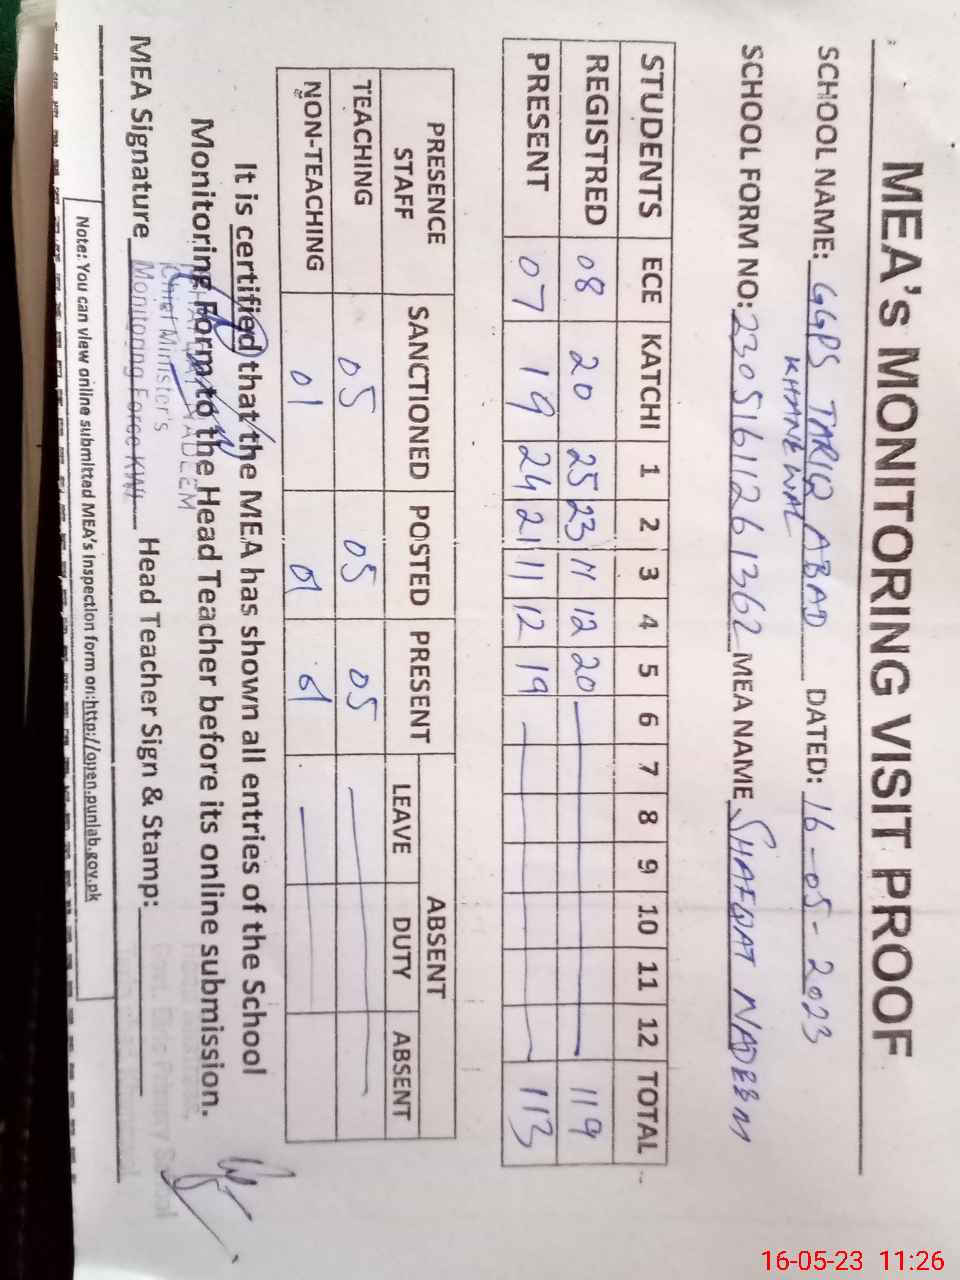 MEA's MONITORING VISIT PROOF
SCHOOL NAME: GGPS TARIQ ABAD DATED: 16-05-2023
KHANEWAL
SCHOOL FORM NO: 23051611261362 MEA NAME SHAFQAT NADEEM
STUDENTS ECE KATCHI 1 2 3 4 5 6 7 8 9 10 11 12 TOTAL
REGISTRED 08 20 25 23 11 12 20 119
PRESENT 07 19 24 21 11 12 19 113
PRESENCE STAFF SANCTIONED POSTED PRESENT ABSENT
LEAVE DUTY ABSENT
TEACHING 05 05 05
NON-TEACHING 01 01 01
It is certified that the MEA has shown all entries of the School
Monitoring Form to the Head Teacher before its online submission.
NADEEM
Chief Minister's
Monitoring Force KWL
MEA Signature Head Teacher Sign & Stamp:
Note: You can view online submitted MEA's Inspection form on:http://open.punjab.gov.pk
16-05-23 11:26